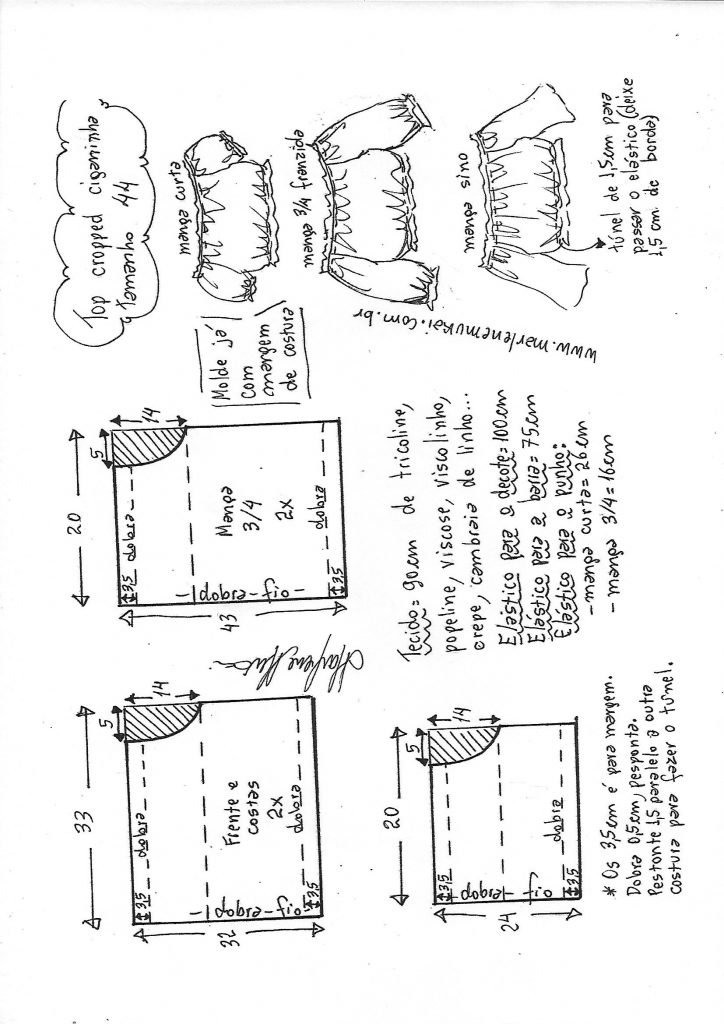 33
5
14
3,5
dobra
Frente e
costas
2x
dobra
3,5
fio - dobra
32
Marlene Mukai
20
5
14
3,5
dobra
Manga
3/4
2x
dobra
3,5
fio - dobra
43
Molde já
com
margem
de costura
Top cropped ciganinha
Tamanho 44
manga curta
manga 3/4 franzida
manga sino
túnel de 1,5cm para
passar o elástico (deixe
1,5 cm de borda)
www.marlenemukai.com.br
Tecido = 90cm de tricoline,
popeline, viscose, viscolinho,
crepe, cambraia de linho...
Elástico para o decote = 100cm
Elástico para a barra = 75cm
Elástico para o punho:
- manga curta = 26cm
- manga 3/4 = 16cm
20
5
14
3,5
dobra
3,5
fio - dobra
24
* Os 3,5cm é para margem.
Dobra 0,5cm, pesponta.
Pestonte 1,5 paralelo a outra
costura para fazer o túnel.